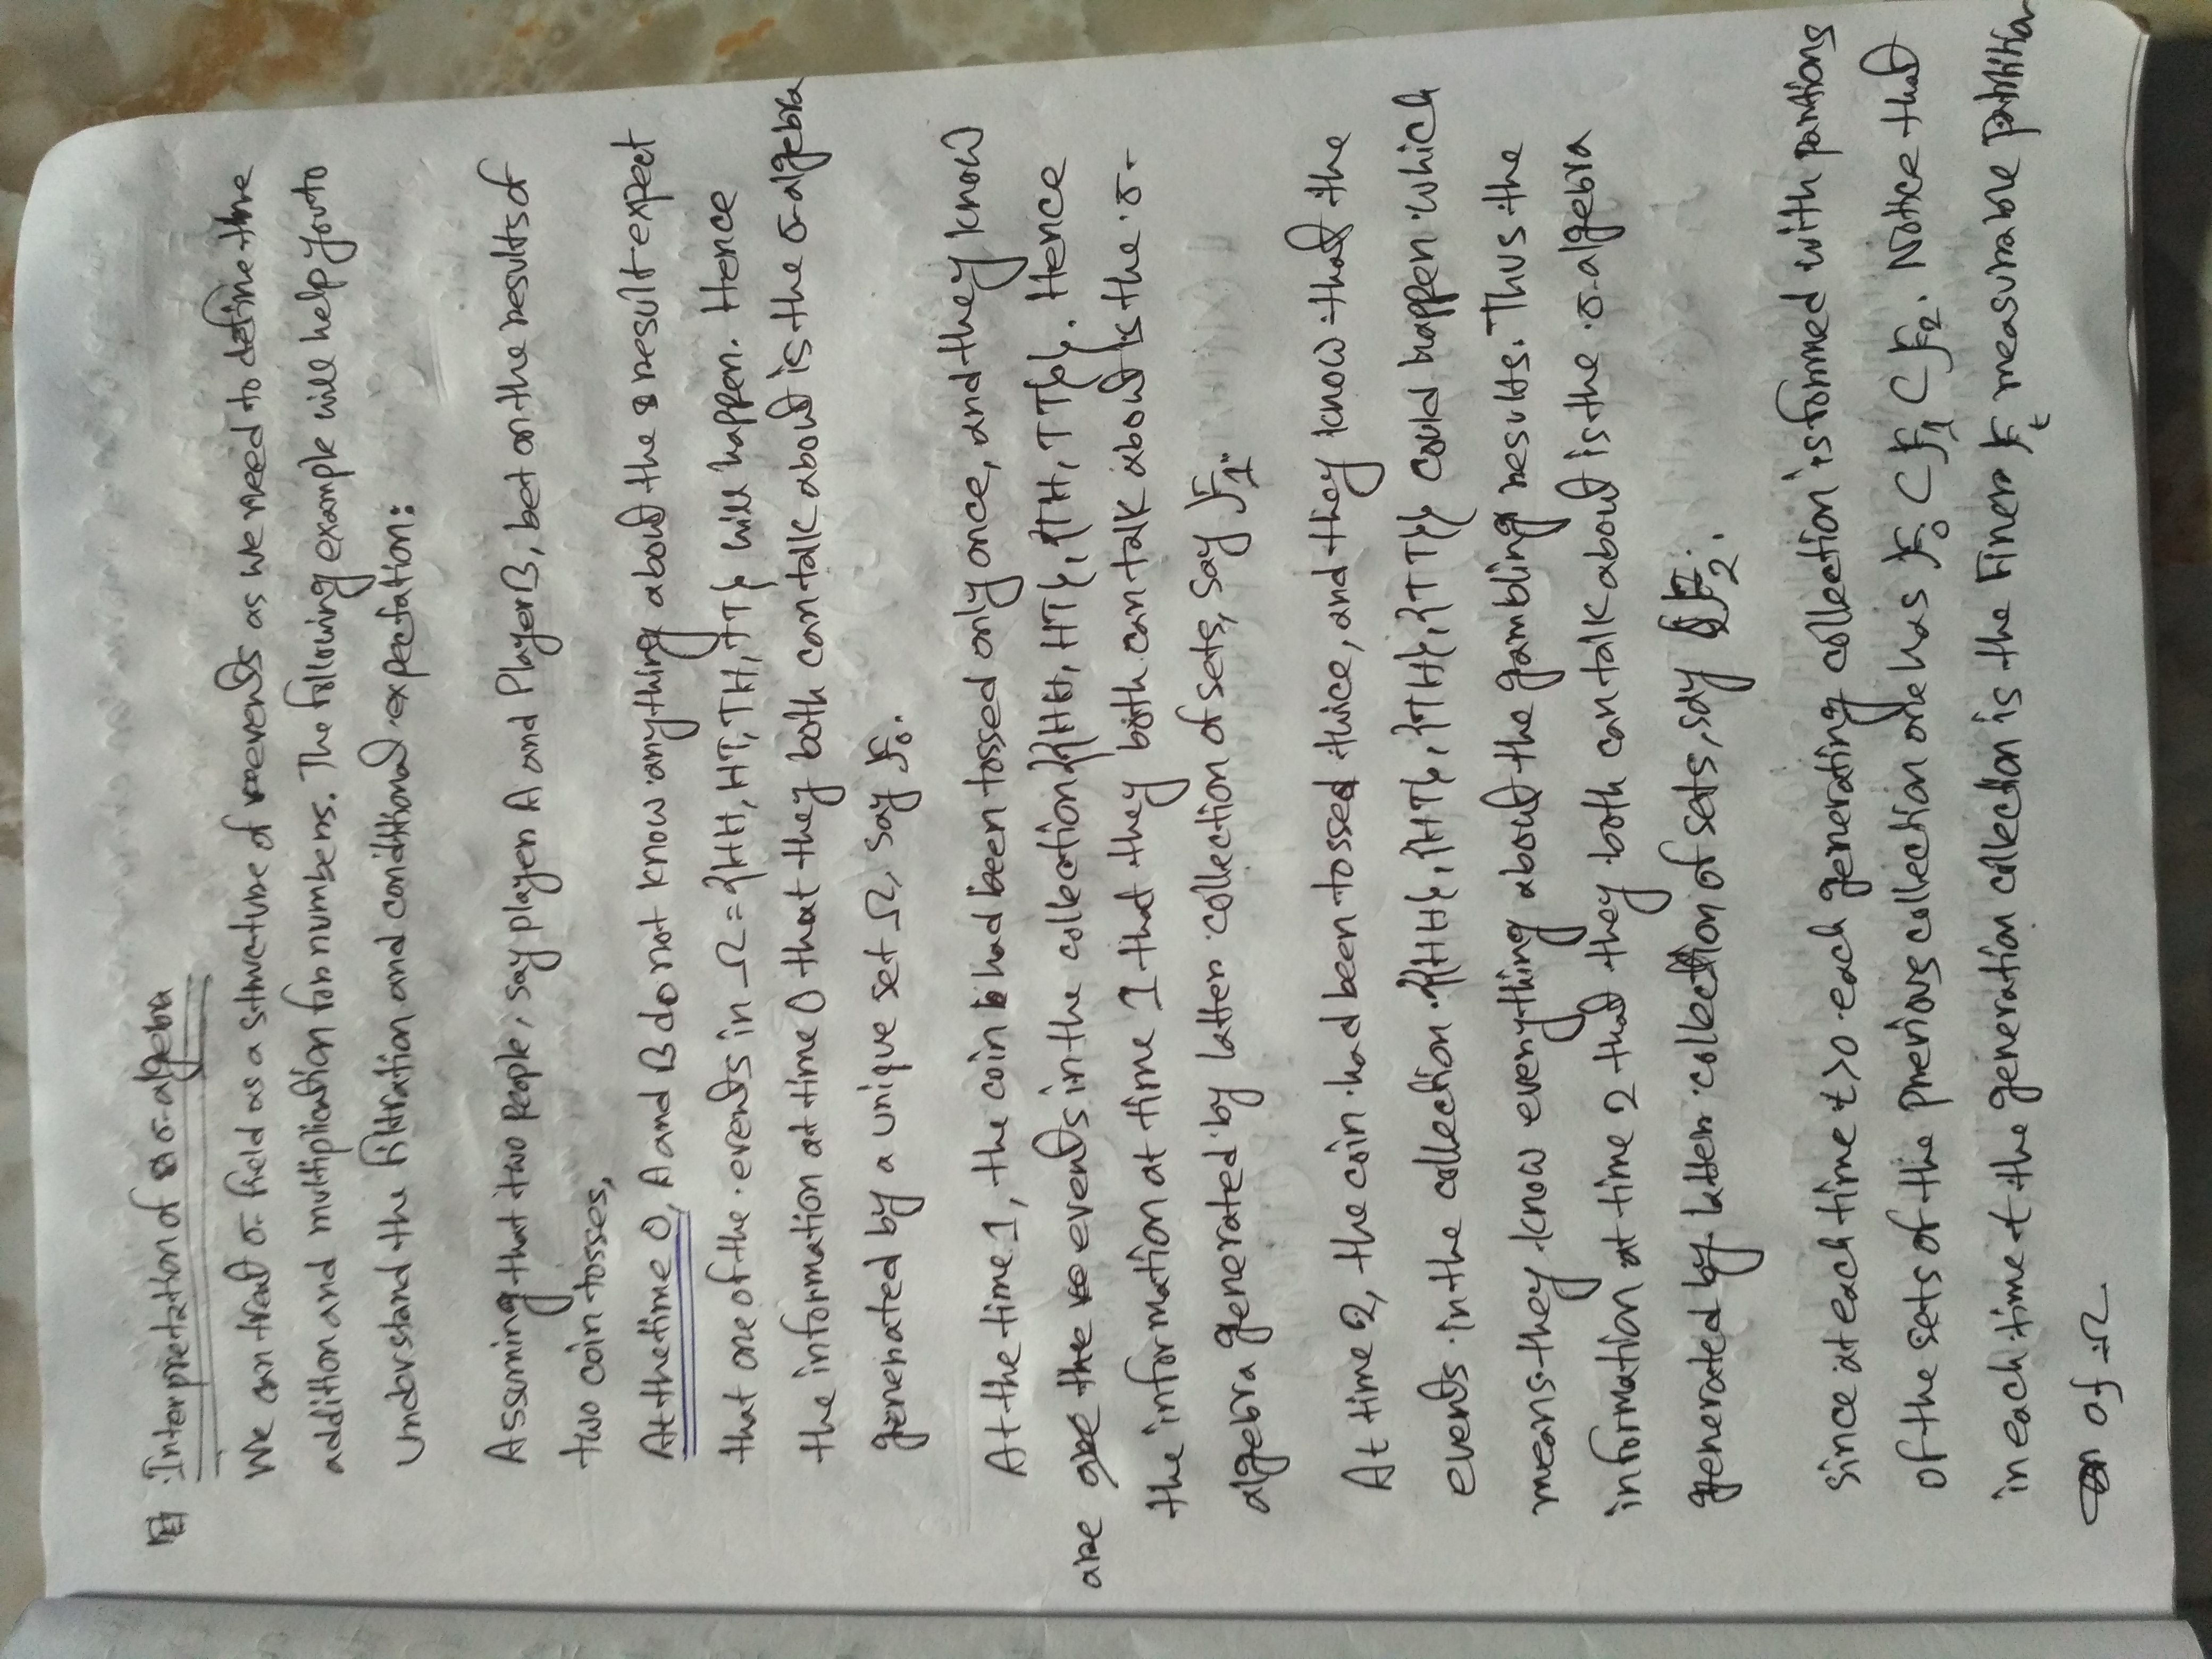 Interpretation of σ-algebra
We can treat σ-field as a structure of events as we need to define the
addition and multiplication for numbers. The following example will help you to
understand the filtration and conditional expectation:
Assuming that two people, say player A and Player B, bet on the results of
two coin tosses,
At the time 0, A and B do not know anything about the result expect
that one of the events in Ω = {HH, HT, TH, TT} will happen. Hence
the information at time 0 that they both can talk about is the σ-algebra
generated by a unique set Ω, say F₀.
At the time 1, the coin had been tossed only once, and they know
are the events in the collection {{HH, HT}, {TH, TT}}. Hence
the information at time 1 that they both can talk about is the σ-
algebra generated by latter collection of sets, say F₁.
At time 2, the coin had been tossed twice, and they know that the
events in the collection {{HH}, {HT}, {TH}, {TT}} could happen which
means they know everything about the gambling results. Thus the
information at time 2 that they both can talk about is the σ-algebra
generated by latter collection of sets, say F₂.
Since at each time t>0 each generating collection is formed with partions
of the sets of the previous collection one has F₀ ⊂ F₁ ⊂ F₂. Notice that
in each time t the generation collection is the Finer Fₜ measurable partition
of Ω